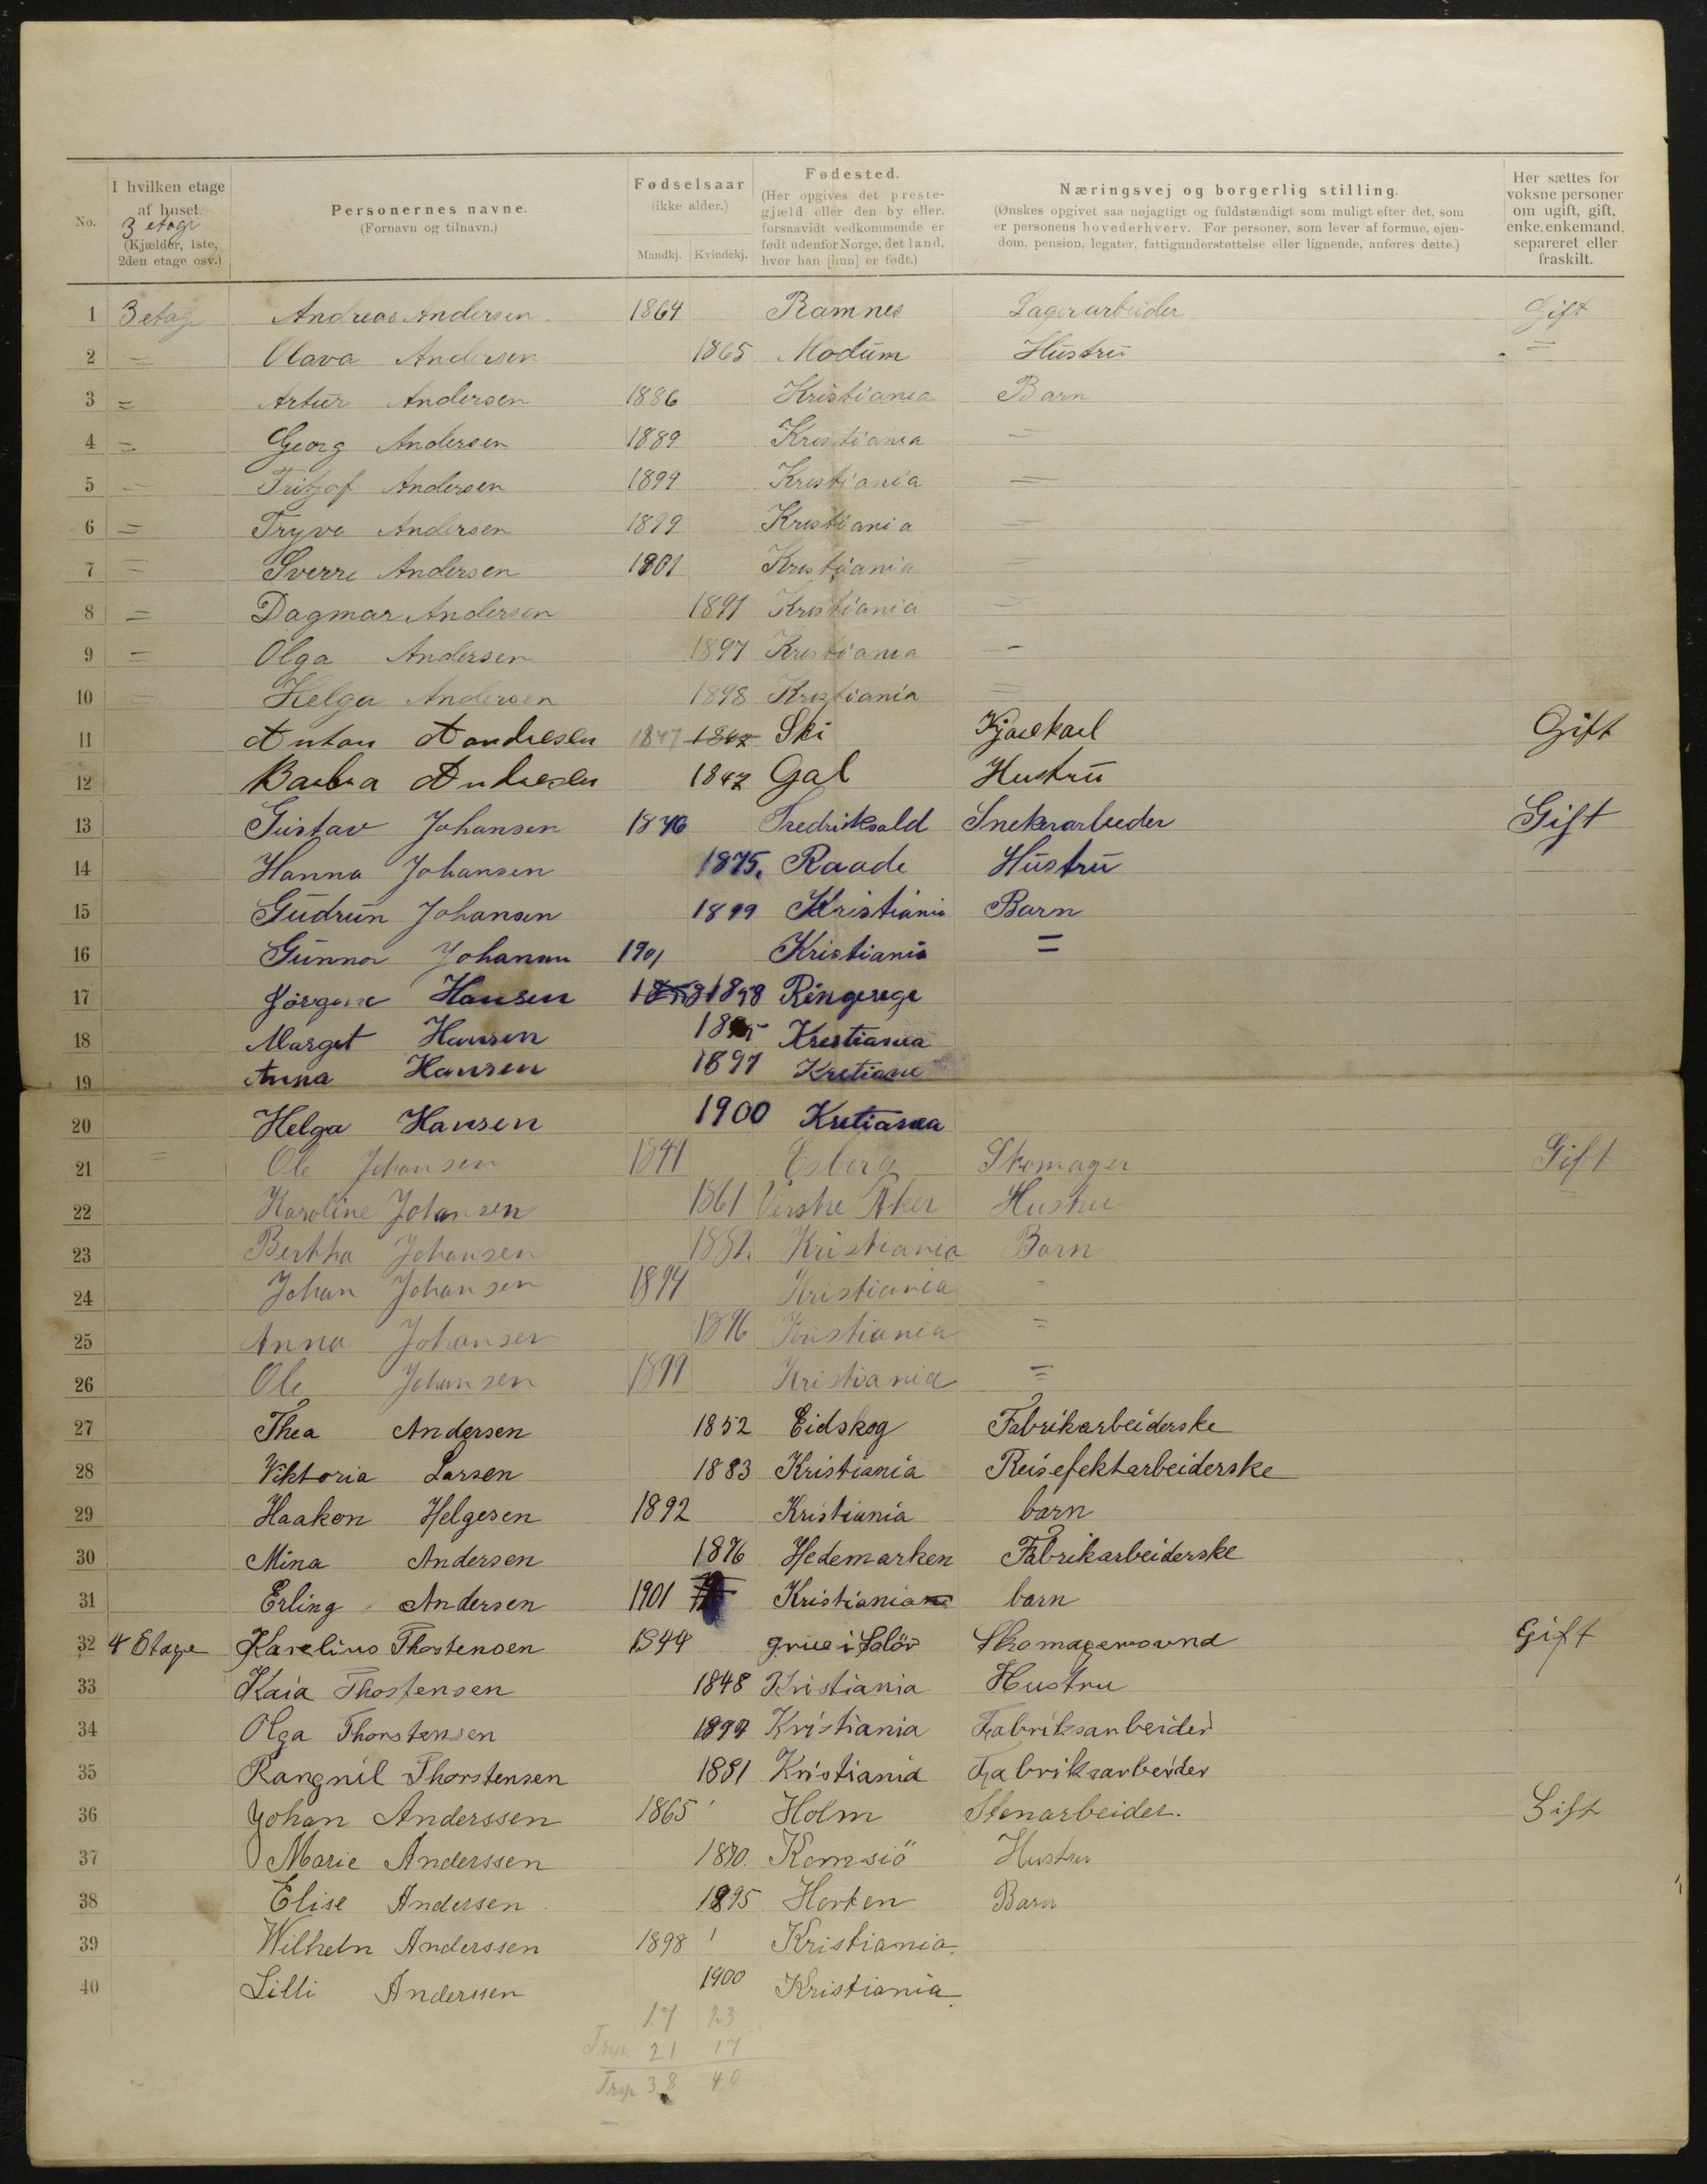 No.
I hvilken etage af huset. 3 etage (Kjælder, 1ste, 2den etage osv.)
Personernes navne. (Fornavn og tilnavn.)
Fødselsaar (ikke alder.) Mandkj. Kvindekj.
Fødested. (Her opgives det prestegjæld eller den by eller, forsaavidt vedkommende er født udenfor Norge, det land, hvor han [hun] er født.)
Næringsvej og borgerlig stilling. (Ønskes opgivet saa nøjagtigt og fuldstændigt som muligt efter det, som er personens hovederhverv. For personer, som lever af formue, ejendom, pension, legater, fattigunderstøttelse eller lignende, anføres dette.)
Her sættes for voksne personer om ugift, gift, enke, enkemand, separeret eller fraskilt.
1 3 etag Andreas Andersen. 1864 Ramnes Lagerarbeider Gift
2 = Olava Andersen 1865 Modum Hustru =
3 = Artur Andersen 1886 Kristiania Barn
4 = Georg Andersen 1889 Kristiania =
5 = Fritjof Andersen 1899 Kristiania =
6 = Tryve Andersen 1899 Kristiania =
7 = Sverre Andersen 1901 Kristiania =
8 = Dagmar Andersen 1891 Kristiania =
9 = Olga Andersen 1897 Kristiania -
10 = Helga Andersen 1898 Kristiania =
11 Anton Aandresen 1847 1847 Ski Kjørekarl Gift
12 Barbra Andresen 1847 Gal Hustru
13 Gustav Johansen 1876 Fredriksald Snekerarbeder Gift
14 Hanna Johansen 1875. Raade Hustru
15 Gudrun Johansen 1899 Kristiania Barn
16 Gunnar Johansen 1901 Kristiania =
17 Jørgine Hansen 1858 Ringerege
18 Marget Hansen Krestiania
19 Anna Hansen 1897 Kretiane
20 Helga Hansen 1900 Kretiania
21 = Ole Johansen 1841 Skomager Gift
22 Karoline Johansen 1861 Vestre Aker Hustru =
23 Bertha Johansen Kristiania Barn
24 Johan Johansen 1894 Kristiania =
25 Anna Johansen 1896 Kristiania =
26 Ole Johansen 1899 Kristiania =
27 Thea Andersen 1852 Eidskog Fabrikarbeiderske
28 Viktoria Larsen 1883 Kristiania Reisefektarbeiderske
29 Haakon Helgesen 1892 Kristiania barn
30 Mina Andersen 1876 Hedemarken Fabrikarbeiderske
31 Erling Andersen 1901 Kristiania barn
32 4 Etage Karelius Thostensen 1844 grue i Solör Gift
33 Kaia Thostensen 1848 Kristiania Hustru
34 Olga Thorstensen Kristiania Fabriksarbeider
35 Rangnil Thorstensen 1881 Kristiania Fabriksarbeider
36 Johan Anderssen 1865 Holm Stenarbeider. Gift
37 Marie Anderssen 1870. Romsiö Hustru
38 Elise Andersen 1895 Horten Barn
39 Wilheln Anderssen 1898 Kristiania.
40 Lilli Anderssen 1900 Kristiania.
17 23
21 17
38 40